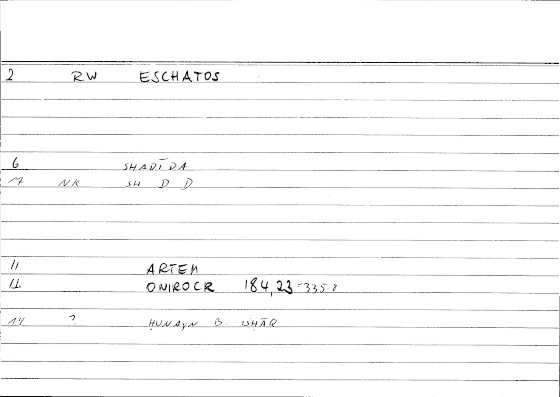 2 RW ESCHATOS
6 SHADĪDA
7 NK SH D D
11 ARTEM
12 ONIROCR 184,23-335.8
14 ? HUNAYN B. ISHĀQ